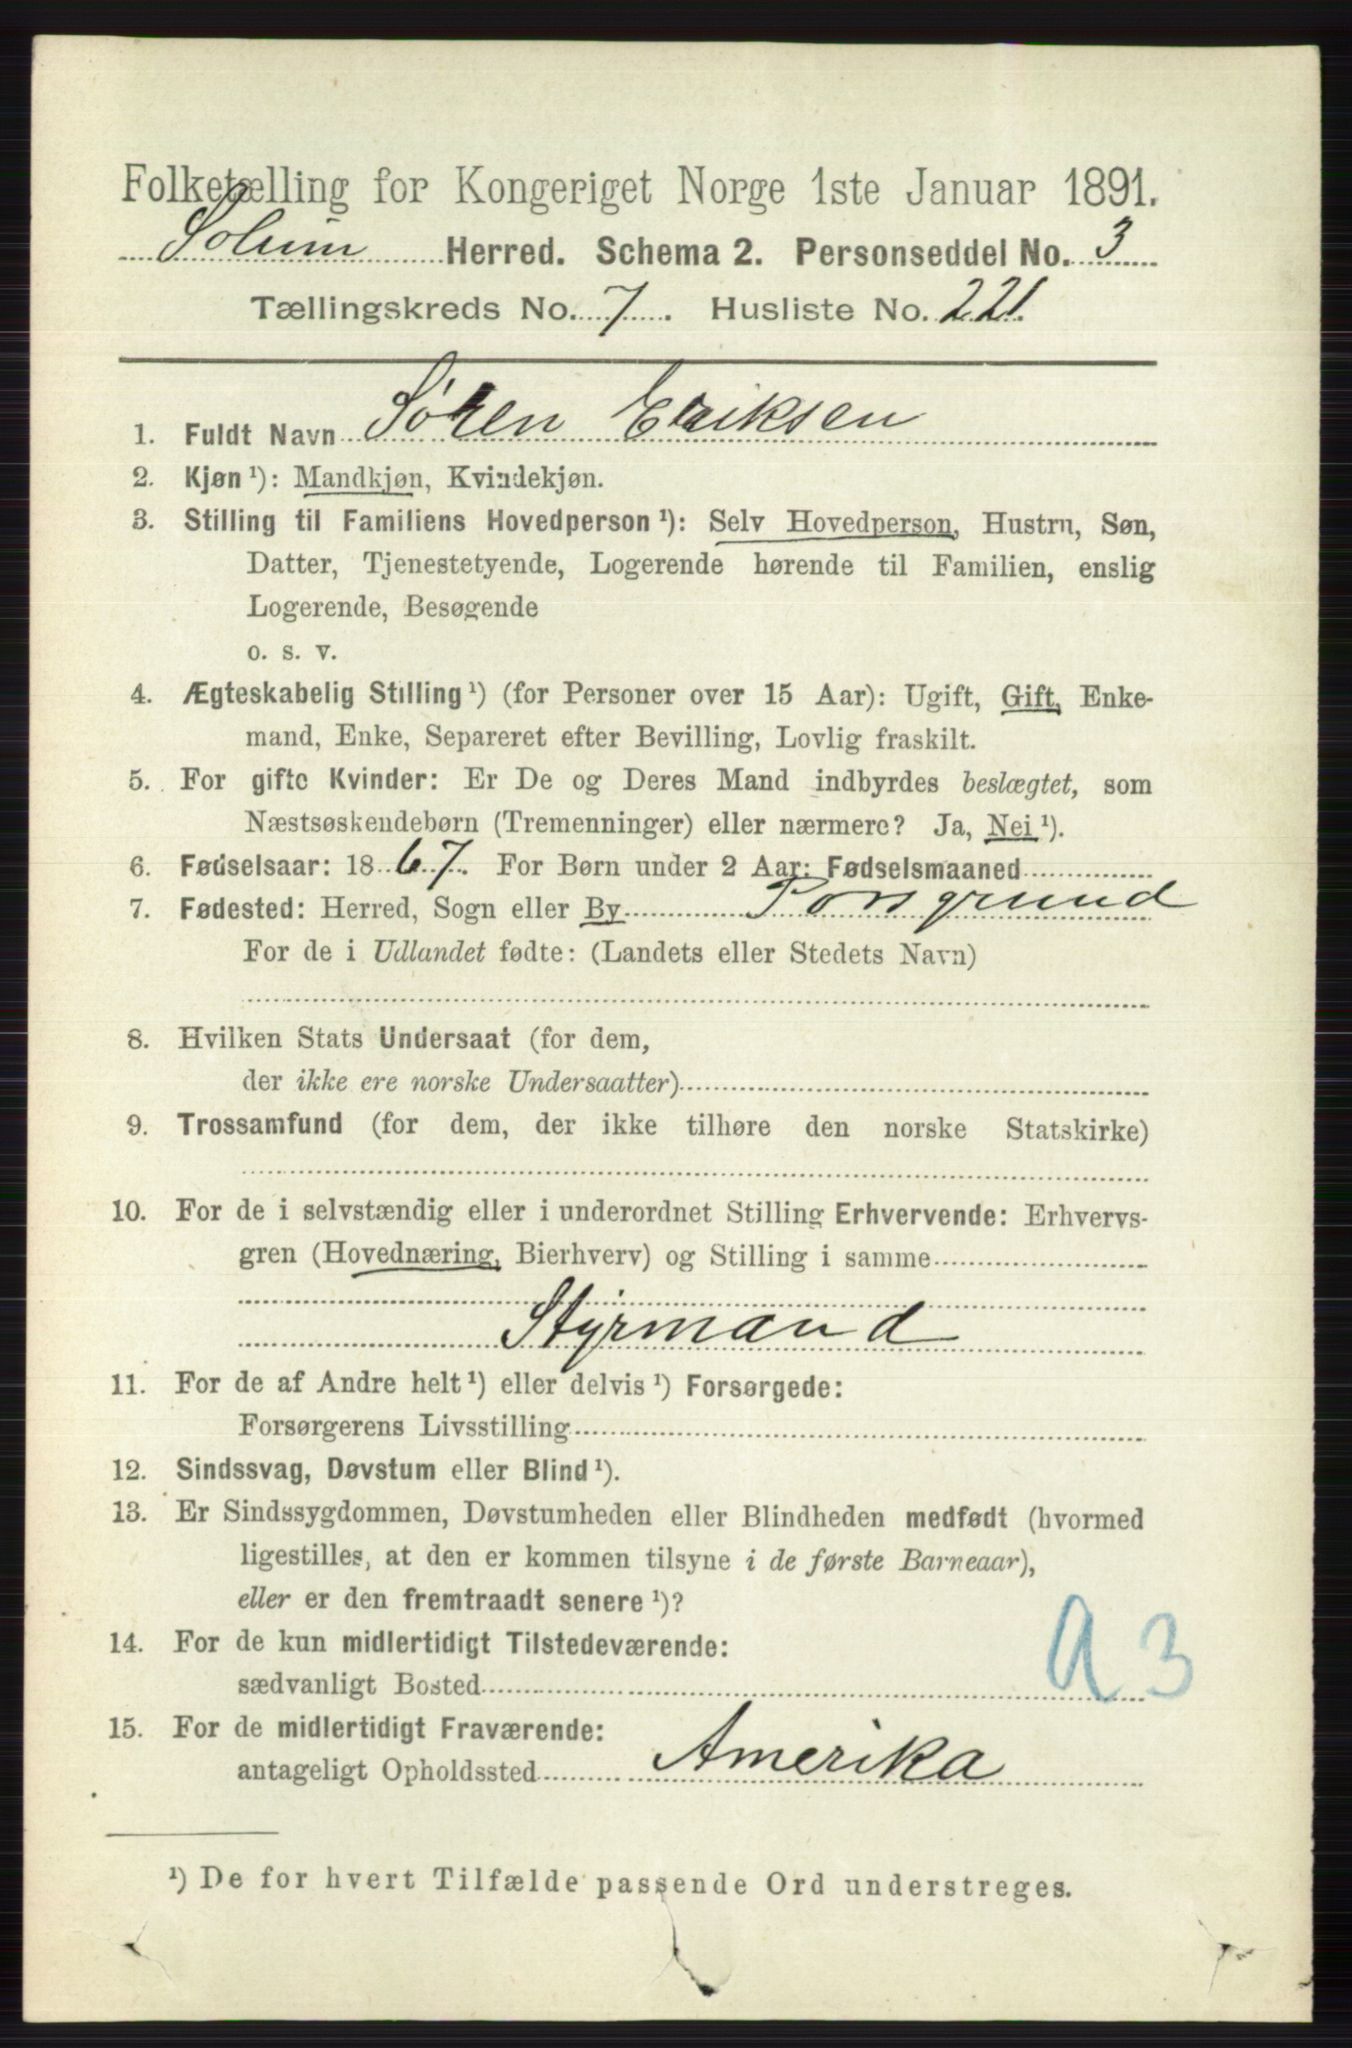 Folketælling for Kongeriget Norge 1ste Januar 1891.
Solum Herred. Schema 2. Personseddel No. 3
Tællingskreds No. 7. Husliste No. 221.
1. Fuldt Navn Søren Eriksen
2. Kjøn ¹): Mandkjøn, Kvindekjøn.
3. Stilling til Familiens Hovedperson ¹): Selv Hovedperson, Hustru, Søn,
Datter, Tjenestetyende, Logerende hørende til Familien, enslig
Logerende, Besøgende
o. s. v.
4. Ægteskabelig Stilling ¹) (for Personer over 15 Aar): Ugift, Gift, Enke-
mand, Enke, Separeret efter Bevilling, Lovlig fraskilt.
5. For gifte Kvinder: Er De og Deres Mand indbyrdes beslægtet, som
Næstsøskendebørn (Tremenninger) eller nærmere? Ja, Nei ¹).
6. Fødselsaar: 1867. For Børn under 2 Aar: Fødselsmaaned
7. Fødested: Herred, Sogn eller By Porsgrund
For de i Udlandet fødte: (Landets eller Stedets Navn)
8. Hvilken Stats Undersaat (for dem,
der ikke ere norske Undersaatter)
9. Trossamfund (for dem, der ikke tilhøre den norske Statskirke)
10. For de i selvstændig eller i underordnet Stilling Erhvervende: Erhvervs-
gren (Hovednæring, Bierhverv) og Stilling i samme
Styrmand
11. For de af Andre helt ¹) eller delvis ¹) Forsørgede:
Forsørgerens Livsstilling
12. Sindssvag, Døvstum eller Blind ¹).
13. Er Sindssygdommen, Døvstumheden eller Blindheden medfødt (hvormed
ligestilles, at den er kommen tilsyne i de første Barneaar),
eller er den fremtraadt senere ¹)?
14. For de kun midlertidigt Tilstedeværende:
sædvanligt Bosted
a 3
15. For de midlertidigt Fraværende:
antageligt Opholdssted Amerika
¹) De for hvert Tilfælde passende Ord understreges.